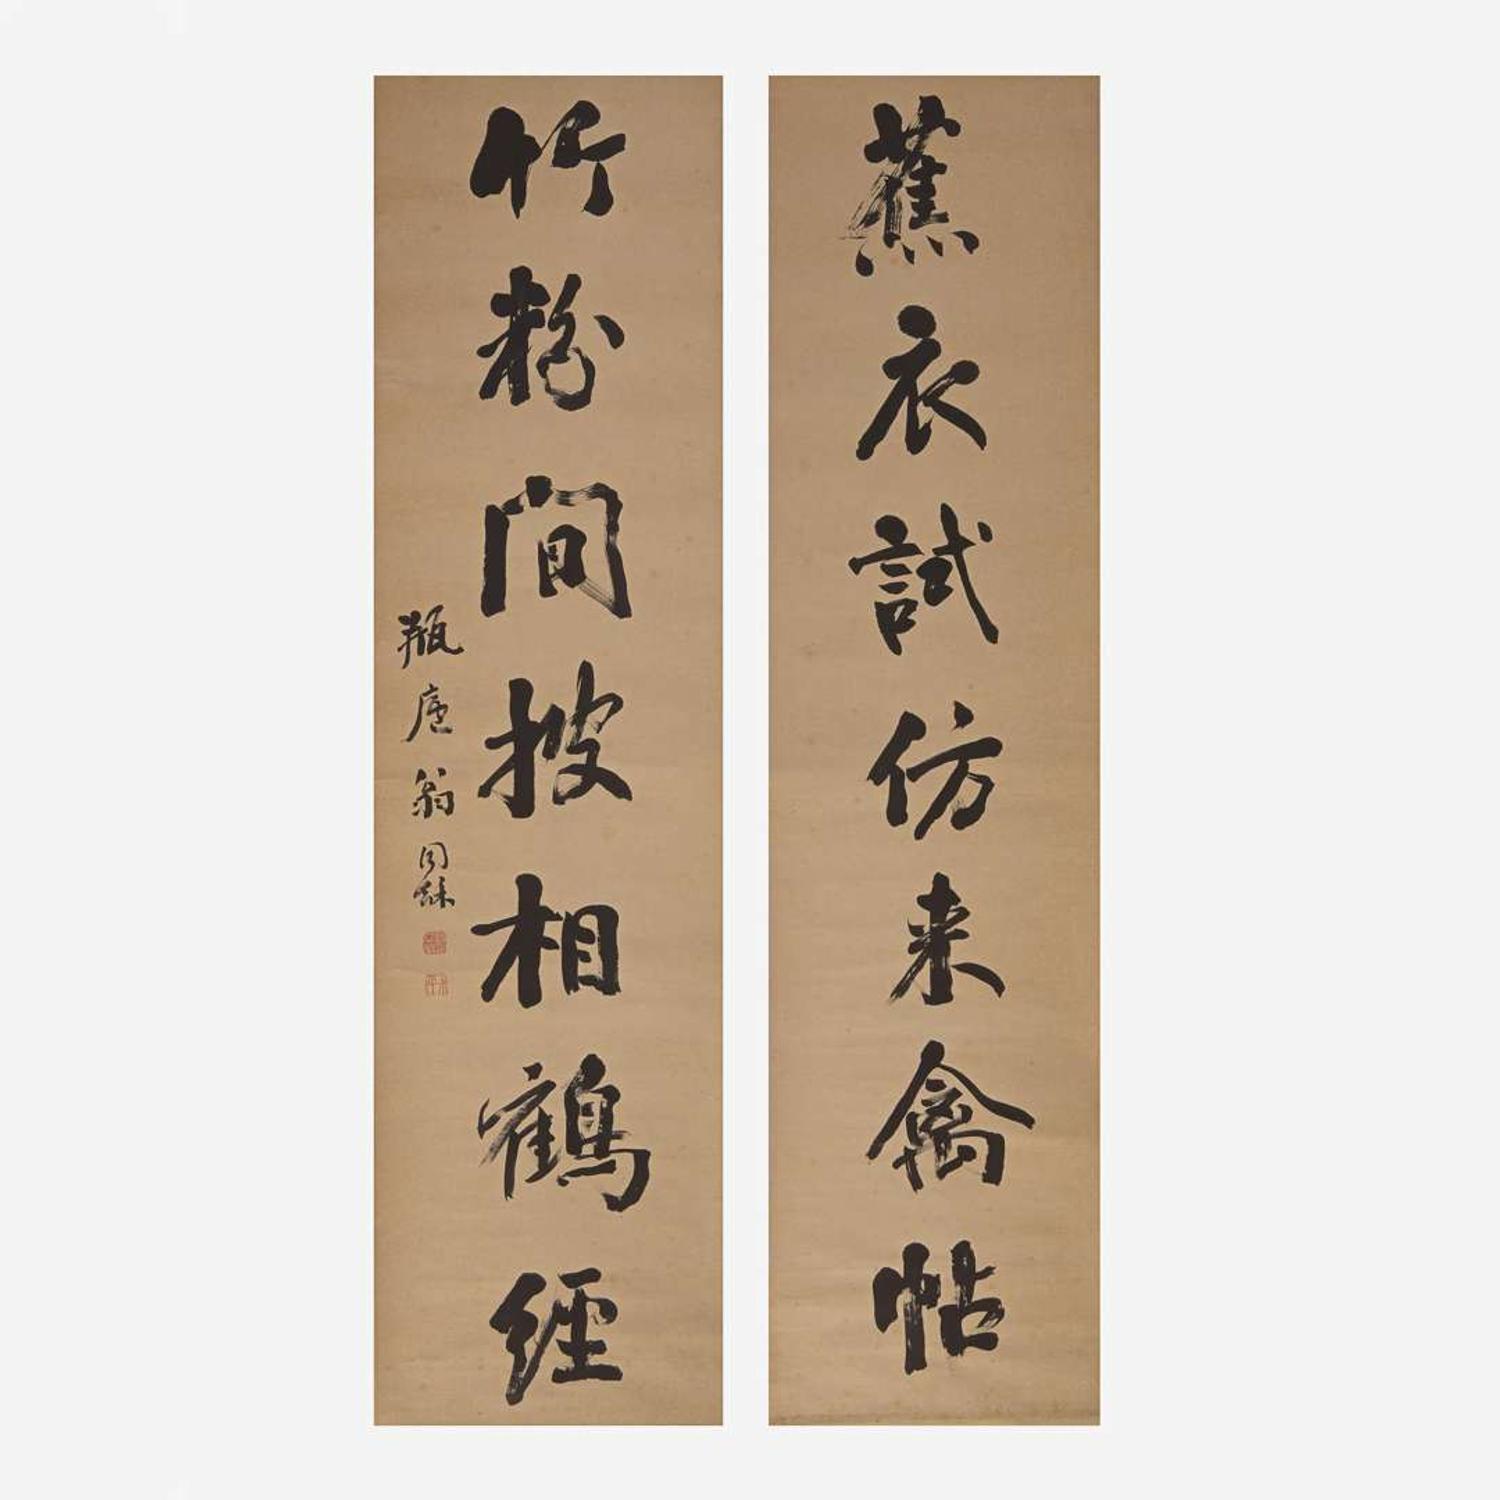 蕉衣試仿来禽帖
竹粉間披相鶴經
瓶廬翁同龢